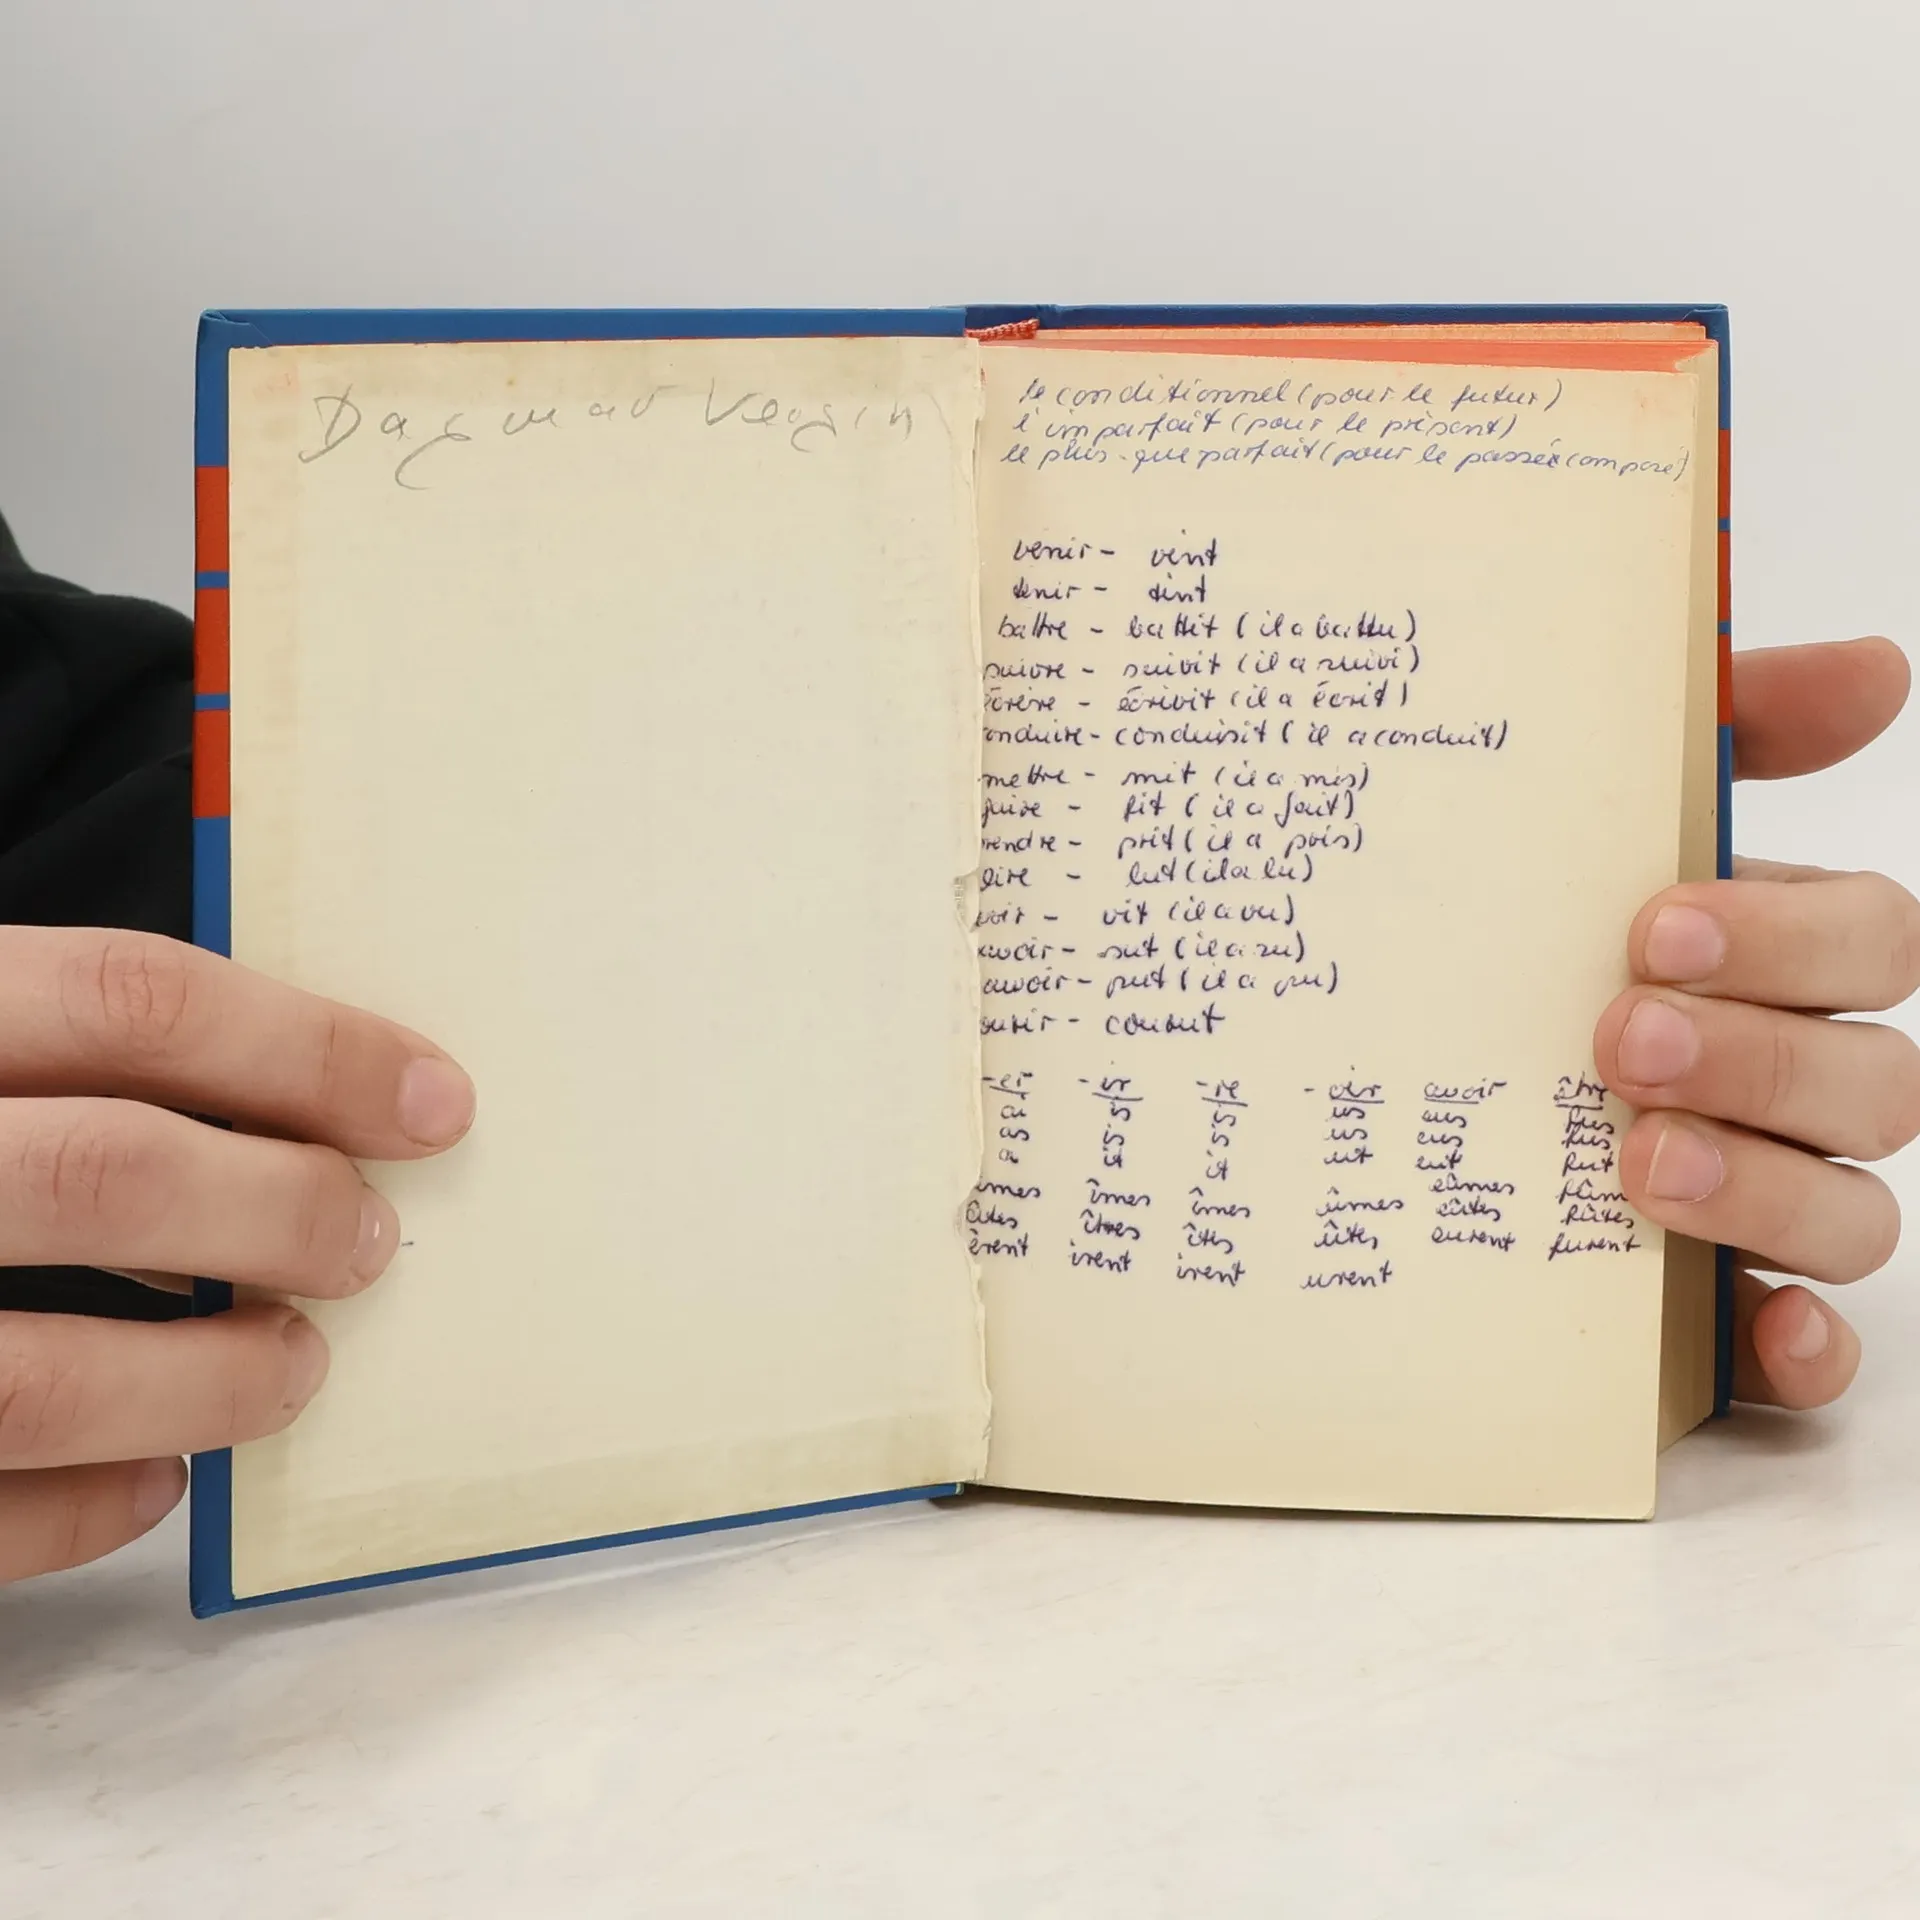 Dagmar
le conditionnel (pour le futur)
l'imparfait (pour le présent)
le plus-que parfait (pour le passé composé)
venir - vint
tenir - tint
battre - battit (il a battu)
suivre - suivit (il a suivi)
écrire - écrivit (il a écrit)
onduire - conduisit (il a conduit)
mettre - mit (il a mis)
faire - fit (il a fait)
rendre - prit (il a pris)
lire - lut (il a lu)
voir - vit (il a vu)
avoir - sut (il a su)
avoir - put (il a pu)
ourir - courut
-er -ir -re -oir avoir être
ai is is us eus fus
as is is us eus fus
a it it ut eut fut
âmes îmes îmes ûmes eûmes fûm
âtes îtes îtes ûtes eûtes fûtes
èrent irent irent urent eurent furent